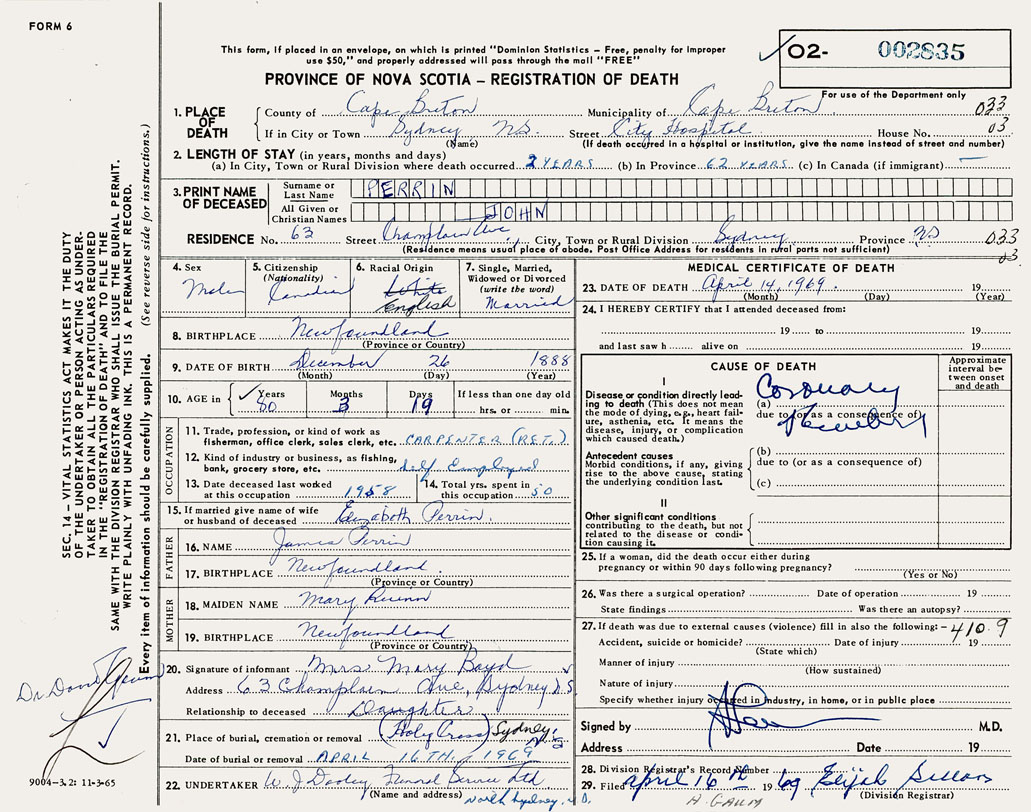 FORM 6
This form, if placed in an envelope, on which is printed "Dominion Statistics – Free, penalty for improper
use $50," and properly addressed will pass through the mail "FREE"
O2- 002835
PROVINCE OF NOVA SCOTIA – REGISTRATION OF DEATH
For use of the Department only
1. PLACE OF DEATH
County of Cape Breton Municipality of Cape Breton 033
If in City or Town Sydney NS. Street City Hospital House No. 03
(Name) (If death occurred in a hospital or institution, give the name instead of street and number)
2. LENGTH OF STAY (in years, months and days)
(a) In City, Town or Rural Division where death occurred 2 YEARS (b) In Province 62 YEARS (c) In Canada (if immigrant) —
3. PRINT NAME OF DECEASED
Surname or Last Name PERRIN
All Given or Christian Names JOHN
RESIDENCE No. 63 Street Champlain Ave, City, Town or Rural Division Sydney Province NS 033
(Residence means usual place of abode. Post Office Address for residents in rural parts not sufficient) 03
4. Sex Male
5. Citizenship (Nationality) Canadian
6. Racial Origin White English
7. Single, Married, Widowed or Divorced (write the word) Married
8. BIRTHPLACE Newfoundland
(Province or Country)
9. DATE OF BIRTH December 26 1888
(Month) (Day) (Year)
10. AGE in Years 80 Months 3 Days 19 If less than one day old hrs. or min.
OCCUPATION
11. Trade, profession, or kind of work as fisherman, office clerk, sales clerk, etc. CARPENTER (RET.)
12. Kind of industry or business, as fishing, bank, grocery store, etc. Self Employed
13. Date deceased last worked at this occupation 1958
14. Total yrs. spent in this occupation 50
15. If married give name of wife or husband of deceased Elizabeth Perrin.
FATHER
16. NAME James Perrin
17. BIRTHPLACE Newfoundland.
(Province or Country)
MOTHER
18. MAIDEN NAME Mary Quinn
19. BIRTHPLACE Newfoundland
(Province or Country)
20. Signature of informant Mrs Mary Boyd
Address 63 Champlain Ave, Sydney N.S
Relationship to deceased Daughter
21. Place of burial, cremation or removal (Holy Cross) Sydney N.S
Date of burial or removal APRIL 16TH, 1969
22. UNDERTAKER W. J. Dooley Funeral Service Ltd
(Name and address) North Sydney, N.S.
MEDICAL CERTIFICATE OF DEATH
23. DATE OF DEATH April 14, 1969. 19
(Month) (Day) (Year)
24. I HEREBY CERTIFY that I attended deceased from:
19 to 19
and last saw h alive on 19
CAUSE OF DEATH
Approximate interval between onset and death
I
Disease or condition directly leading to death (This does not mean the mode of dying, e.g., heart failure, asthenia, etc. It means the disease, injury, or complication which caused death.)
(a) Coronary
due to (or as a consequence of)
Antecedent causes
Morbid conditions, if any, giving rise to the above cause, stating the underlying condition last.
(b)
due to (or as a consequence of)
(c)
II
Other significant conditions
contributing to the death, but not related to the disease or condition causing it.
25. If a woman, did the death occur either during
pregnancy or within 90 days following pregnancy?
(Yes or No)
26. Was there a surgical operation? Date of operation 19
State findings Was there an autopsy?
27. If death was due to external causes (violence) fill in also the following: – 410.9
Accident, suicide or homicide? Date of injury 19
(State which)
Manner of injury
(How sustained)
Nature of injury
Specify whether injury occurred in industry, in home, or in public place
Signed by M.D.
Address Date 19
28. Division Registrar's Record Number
29. Filed April 16th 1969 Elijah
(Division Registrar)
SEC. 14 – VITAL STATISTICS ACT MAKES IT THE DUTY
OF THE UNDERTAKER OR PERSON ACTING AS UNDER-
TAKER TO OBTAIN ALL THE PARTICULARS REQUIRED
IN THE "REGISTRATION OF DEATH" AND TO FILE THE
SAME WITH THE DIVISION REGISTRAR WHO SHALL ISSUE THE BURIAL PERMIT.
WRITE PLAINLY WITH UNFADING INK. THIS IS A PERMANENT RECORD.
Every item of information should be carefully supplied. (See reverse side for instructions.)
9004-3.2: 11-3-65